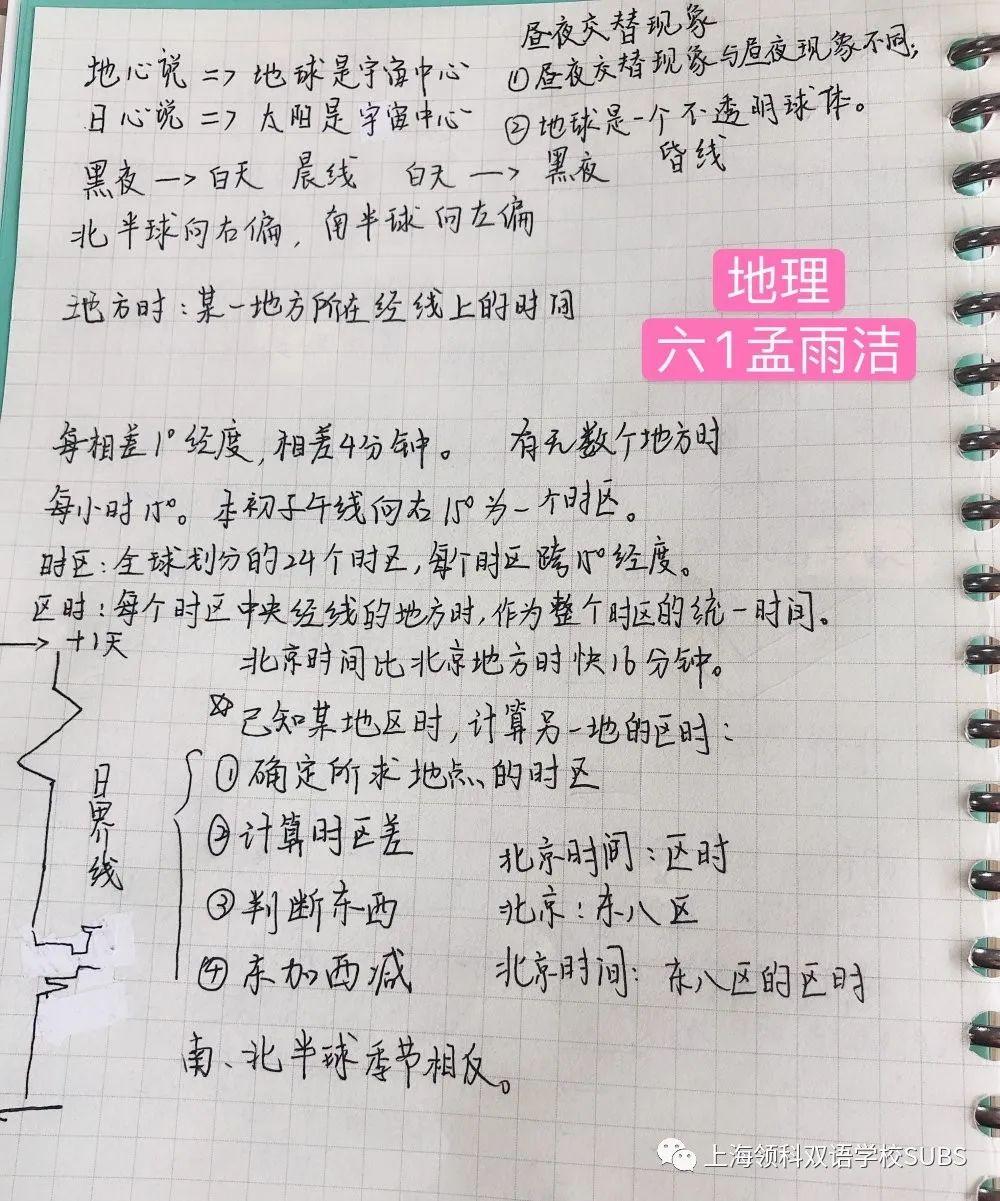 昼夜交替现象
地心说 => 地球是宇宙中心
①昼夜交替现象与昼夜现象不同;
日心说 => 太阳是宇宙中心
②地球是一个不透明球体。
黑夜 —> 白天 晨线 白天 —> 黑夜 昏线
北半球向右偏, 南半球向左偏
地理
六1孟雨洁
地方时:某一地方所在经线上的时间
每相差1°经度,相差4分钟。 有无数个地方时
每小时15°。本初子午线向右15°为一个时区。
时区:全球划分的24个时区,每个时区跨15°经度。
区时:每个时区中央经线的地方时,作为整个时区的统一时间。
+1天
北京时间比北京地方时快16分钟。
☆已知某地区时,计算另一地的区时:
①确定所求地点的时区
日界线
②计算时区差
北京时间:区时
③判断东西
北京:东八区
④东加西减
北京时间:东八区的区时
南、北半球季节相反。
上海领科双语学校SUBS